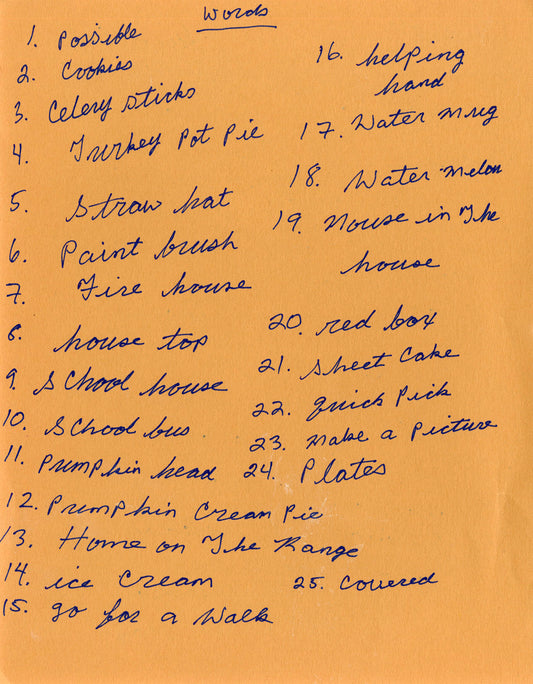 Words
1. Possible
2. Cookies
3. Celery sticks
4. Turkey Pot Pie
5. Straw hat
6. Paint brush
7. Fire house
8. house top
9. School house
10. School bus
11. Pumpkin head
12. Pumpkin Cream Pie
13. Home on The Range
14. ice cream
15. go for a walk
16. helping
hand
17. Water mug
18. Water melon
19. Mouse in The
house
20. red box
21. sheet Cake
22. quick Pick
23. Make a Picture
24. Plates
25. Covered